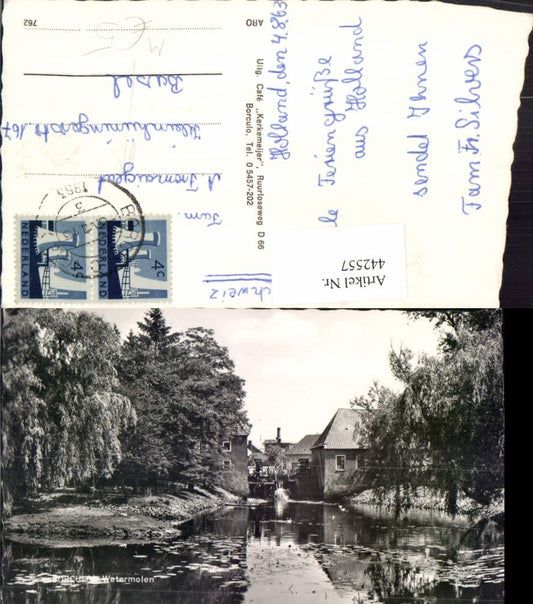 Holland, den 4.8.63
le Feriengrüße
aus Holland
sendet Ihnen
Fam. Fr. Silvers
Uitg. Café „Kerkemeijer", Ruurloseweg D 66
Borculo, Tel. 0 5457-202
ARO
762
Fam.
Basel
chweiz
NEDERLAND
4c
NEDERLAND
4c
Artikel Nr.
442557
BORCULO, Watermolen